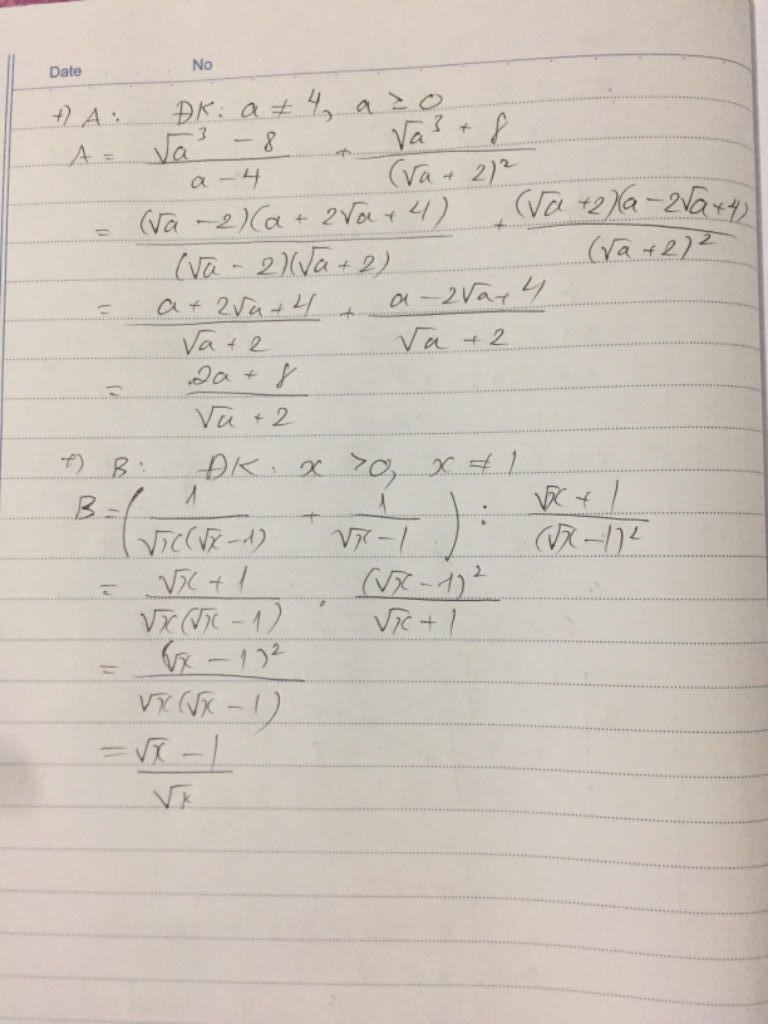 Date No
+) A: ĐK: a ≠ 4, a ≥ 0
A = (√a³ - 8)/(a - 4) + (√a³ + 8)/(√a + 2)²
= (√a - 2)(a + 2√a + 4)/(√a - 2)(√a + 2) + (√a + 2)(a - 2√a + 4)/(√a + 2)²
= (a + 2√a + 4)/(√a + 2) + (a - 2√a + 4)/(√a + 2)
= (2a + 8)/(√a + 2)
+) B: ĐK: x > 0, x ≠ 1
B = (1/√x(√x - 1) + 1/(√x - 1)) : (√x + 1)/(√x - 1)²
= (√x + 1)/√x(√x - 1) . (√x - 1)²/(√x + 1)
= (√x - 1)²/√x(√x - 1)
= (√x - 1)/√x